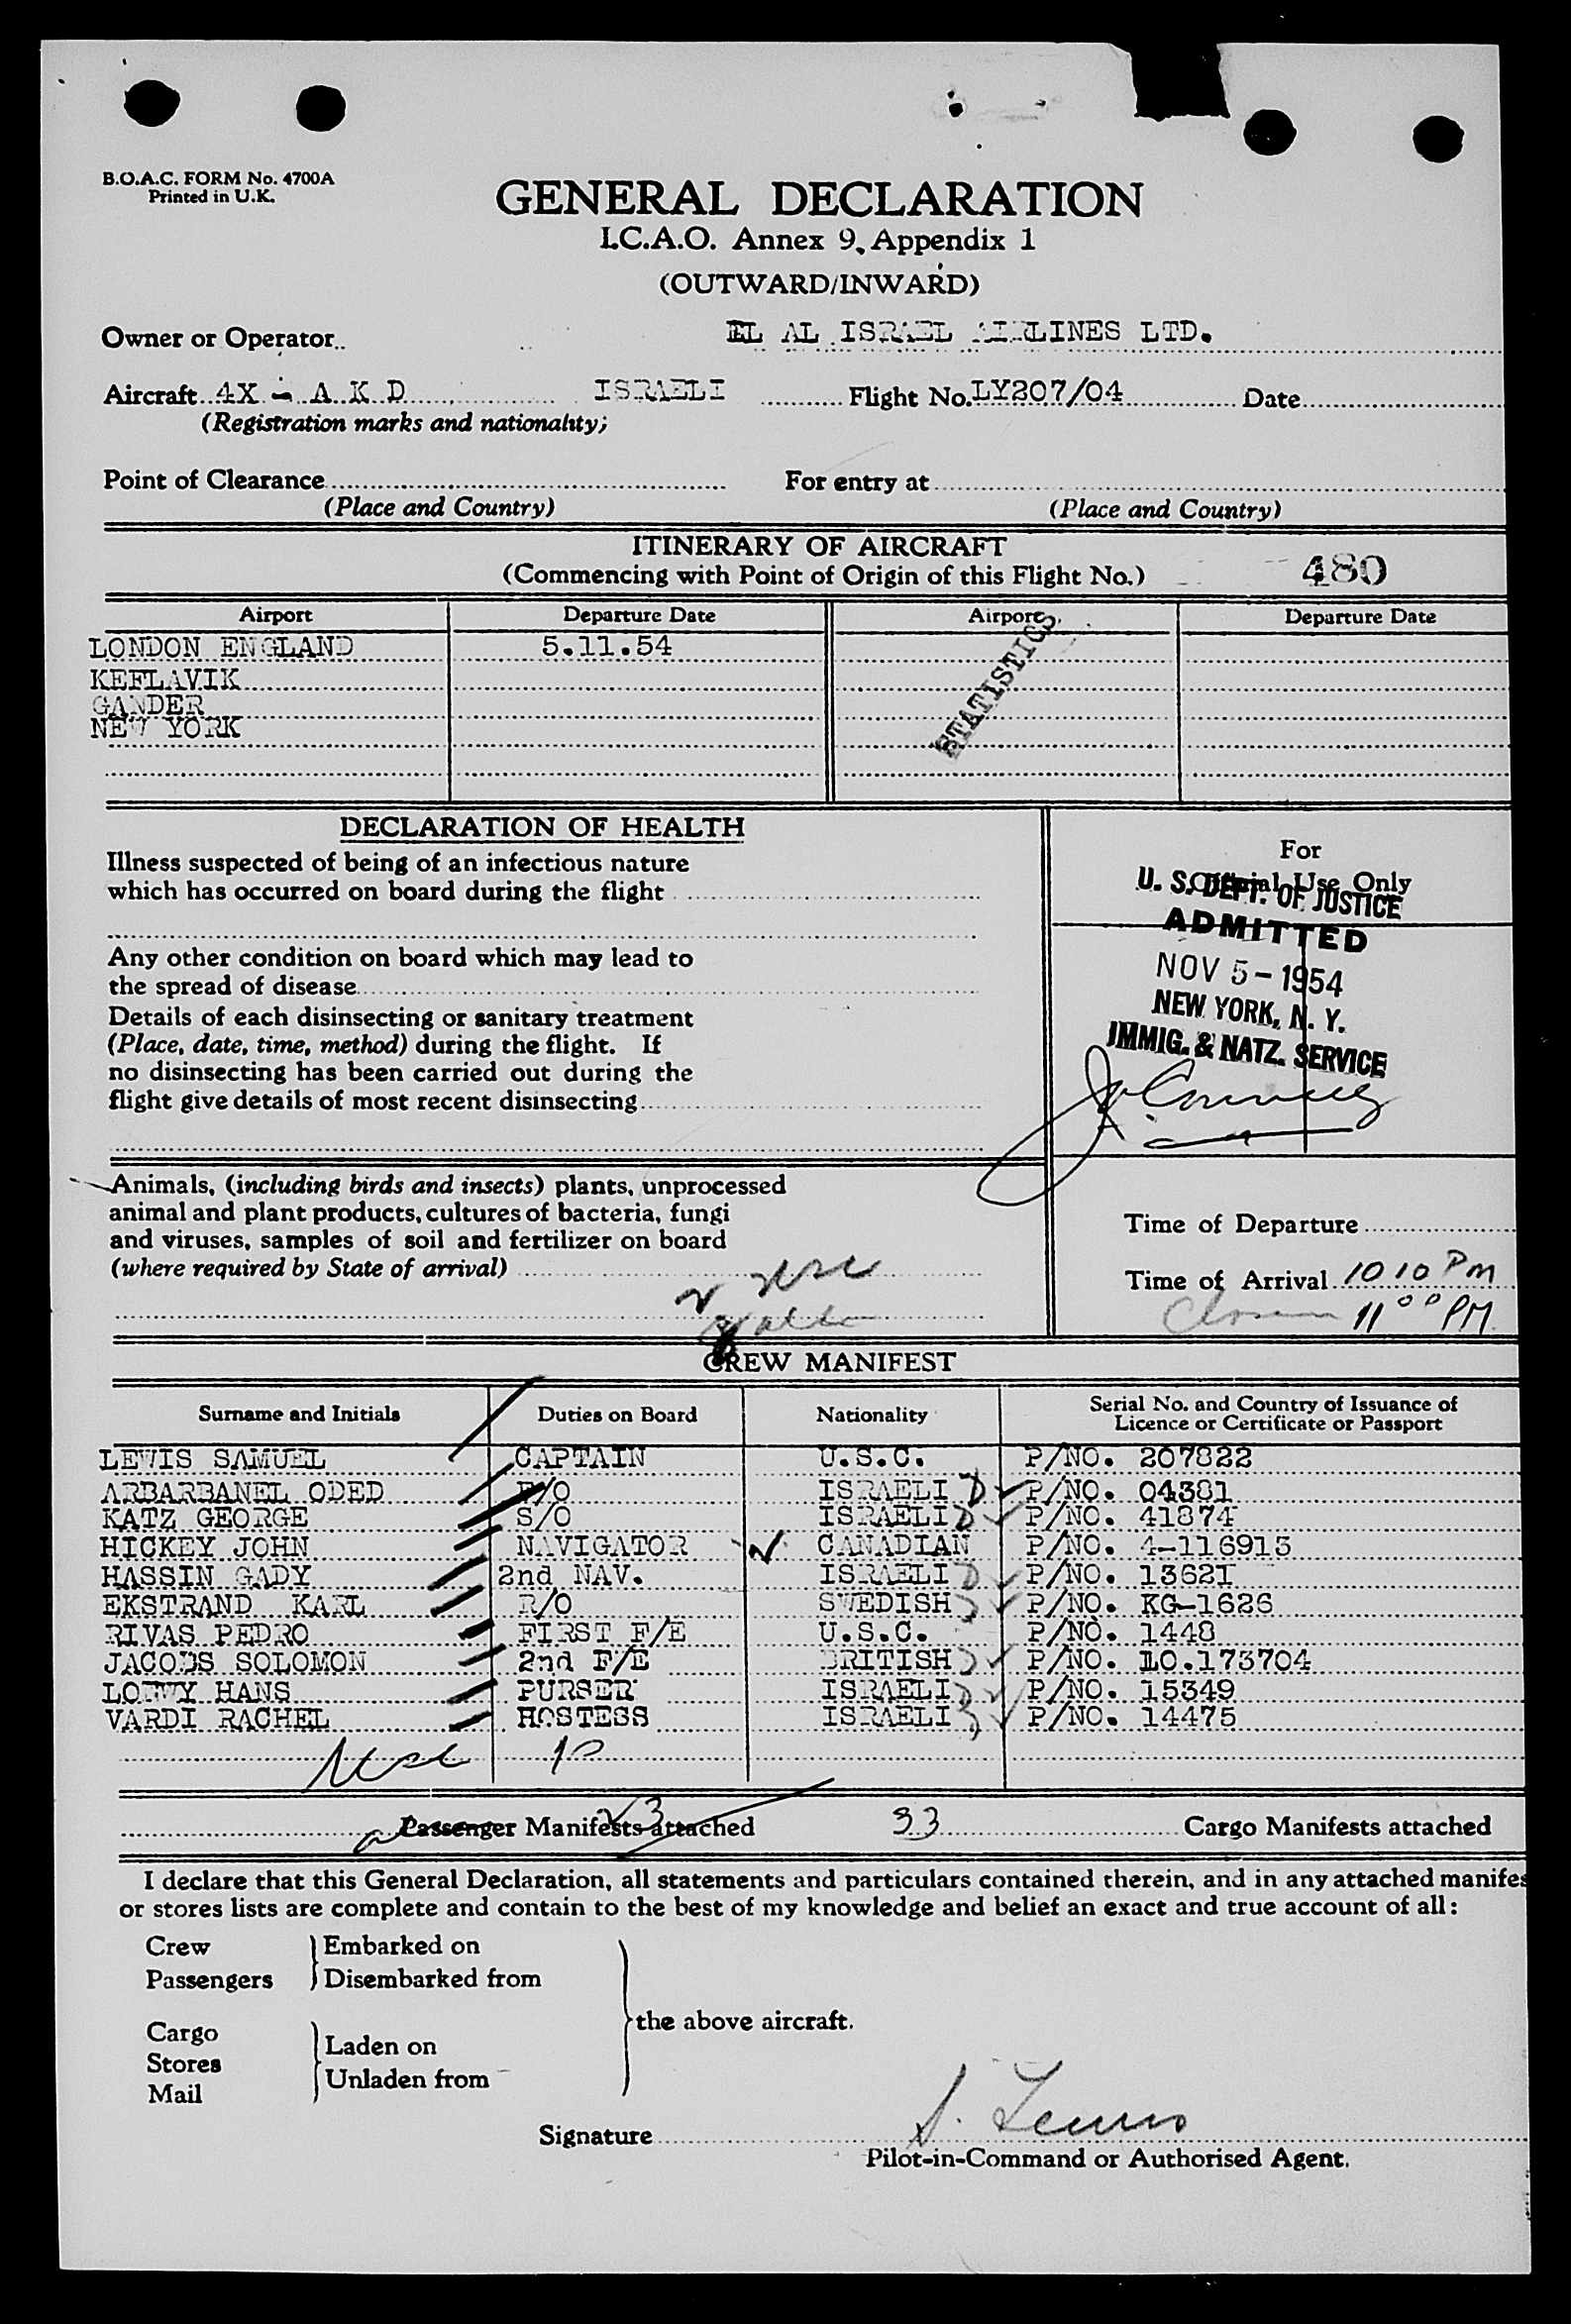 B.O.A.C. FORM No. 4700A
Printed in U.K.
GENERAL DECLARATION
I.C.A.O. Annex 9, Appendix 1
(OUTWARD/INWARD)
Owner or Operator EL AL ISRAEL AIRLINES LTD.
Aircraft 4X - A K D ISRAELI Flight No. LY207/04 Date
(Registration marks and nationality;
Point of Clearance For entry at
(Place and Country) (Place and Country)
ITINERARY OF AIRCRAFT
(Commencing with Point of Origin of this Flight No.) 480
Airport Departure Date Airport Departure Date
LONDON ENGLAND 5.11.54
KEFLAVIK
GANDER
NEW YORK
STATISTICS
DECLARATION OF HEALTH
Illness suspected of being of an infectious nature
which has occurred on board during the flight
Any other condition on board which may lead to
the spread of disease
Details of each disinsecting or sanitary treatment
(Place, date, time, method) during the flight. If
no disinsecting has been carried out during the
flight give details of most recent disinsecting
For
Official Use Only
U. S. DEPT. OF JUSTICE
ADMITTED
NOV 5 - 1954
NEW YORK, N. Y.
IMMIG. & NATZ. SERVICE
Animals, (including birds and insects) plants, unprocessed
animal and plant products, cultures of bacteria, fungi
and viruses, samples of soil and fertilizer on board
(where required by State of arrival)
Time of Departure
Time of Arrival 10 10 PM
11 00 PM
CREW MANIFEST
Surname and Initials Duties on Board Nationality Serial No. and Country of Issuance of
Licence or Certificate or Passport
LEWIS SAMUEL CAPTAIN U.S.C. P/NO. 207822
ARBARBANEL ODED F/O ISRAELI D P/NO. 04381
KATZ GEORGE S/O ISRAELI D P/NO. 41874
HICKEY JOHN NAVIGATOR CANADIAN P/NO. 4-116915
HASSIN GADY 2nd NAV. ISRAELI D P/NO. 13621
EKSTRAND KARL R/O SWEDISH D P/NO. KG-1626
RIVAS PEDRO FIRST F/E U.S.C. P/NO. 1448
JACOBS SOLOMON 2nd F/E BRITISH D P/NO. LO.173704
LOEWY HANS PURSER ISRAELI D P/NO. 15349
VARDI RACHEL HOSTESS ISRAELI D P/NO. 14475
10
Passenger Manifests attached 33 Cargo Manifests attached
I declare that this General Declaration, all statements and particulars contained therein, and in any attached manifes
or stores lists are complete and contain to the best of my knowledge and belief an exact and true account of all:
Crew Embarked on
Passengers Disembarked from
the above aircraft.
Cargo Laden on
Stores
Unladen from
Mail
Signature S. Lewis
Pilot-in-Command or Authorised Agent.